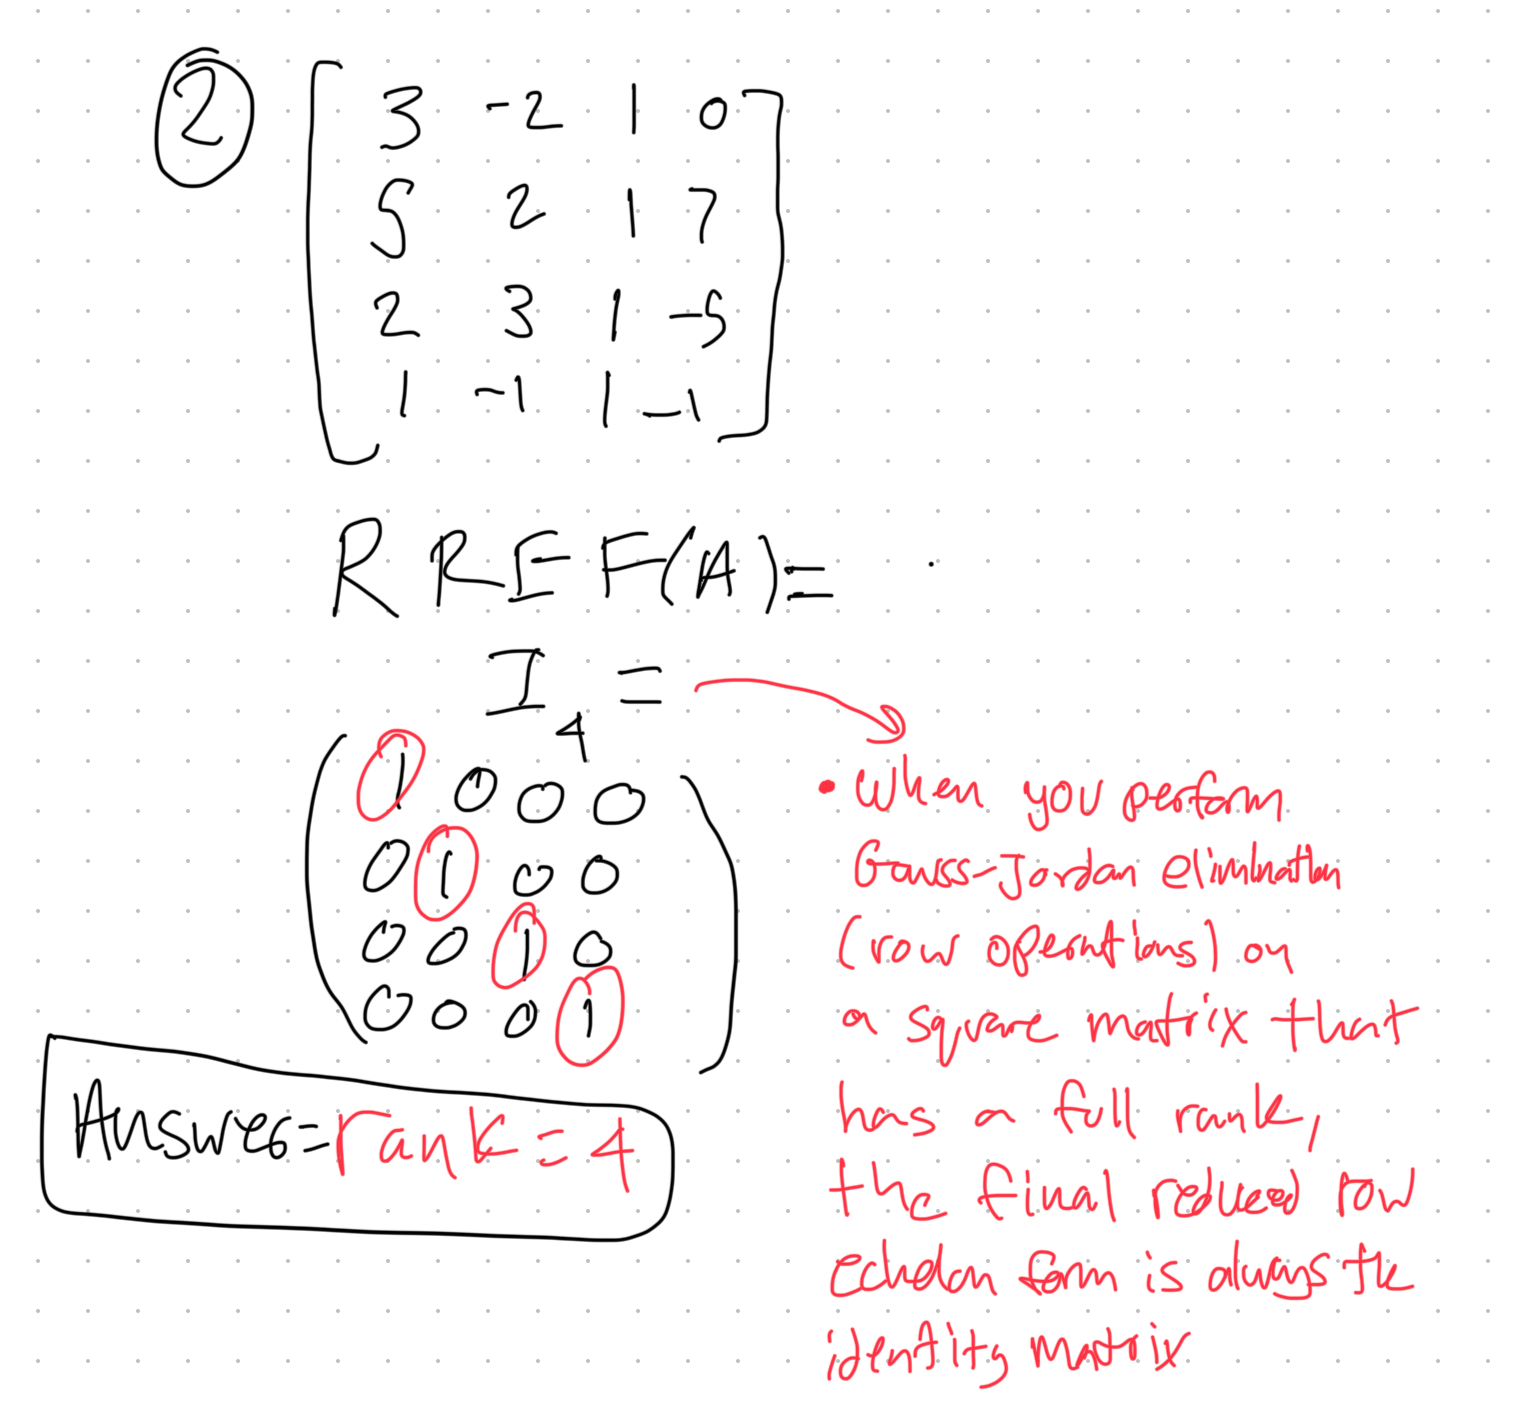 2
3 -2 1 0
5 2 1 7
2 3 1 -5
1 -1 1 -1
RREF(A)=
I4 =
1 0 0 0
0 1 0 0
0 0 1 0
0 0 0 1
Answer=rank=4
• When you perform
Gauss-Jordan elimination
(row operations) on
a square matrix that
has a full rank,
the final reduced row
echelon form is always the
identity matrix